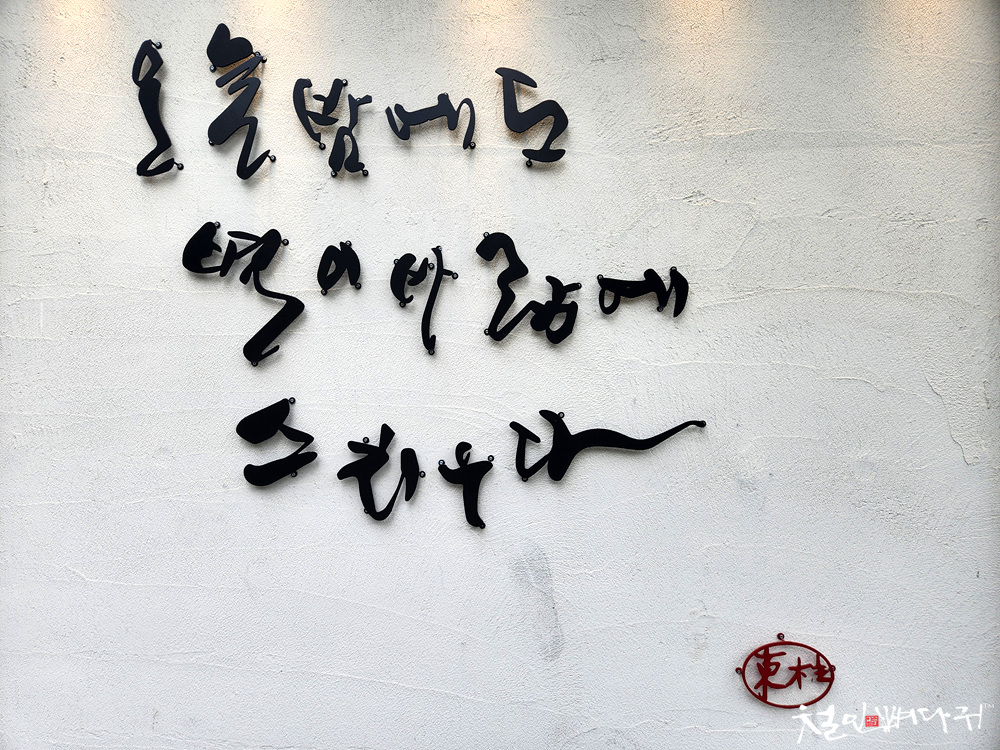 오늘밤에도
별이바람에
스치운다
東柱
철인뼈다귀™